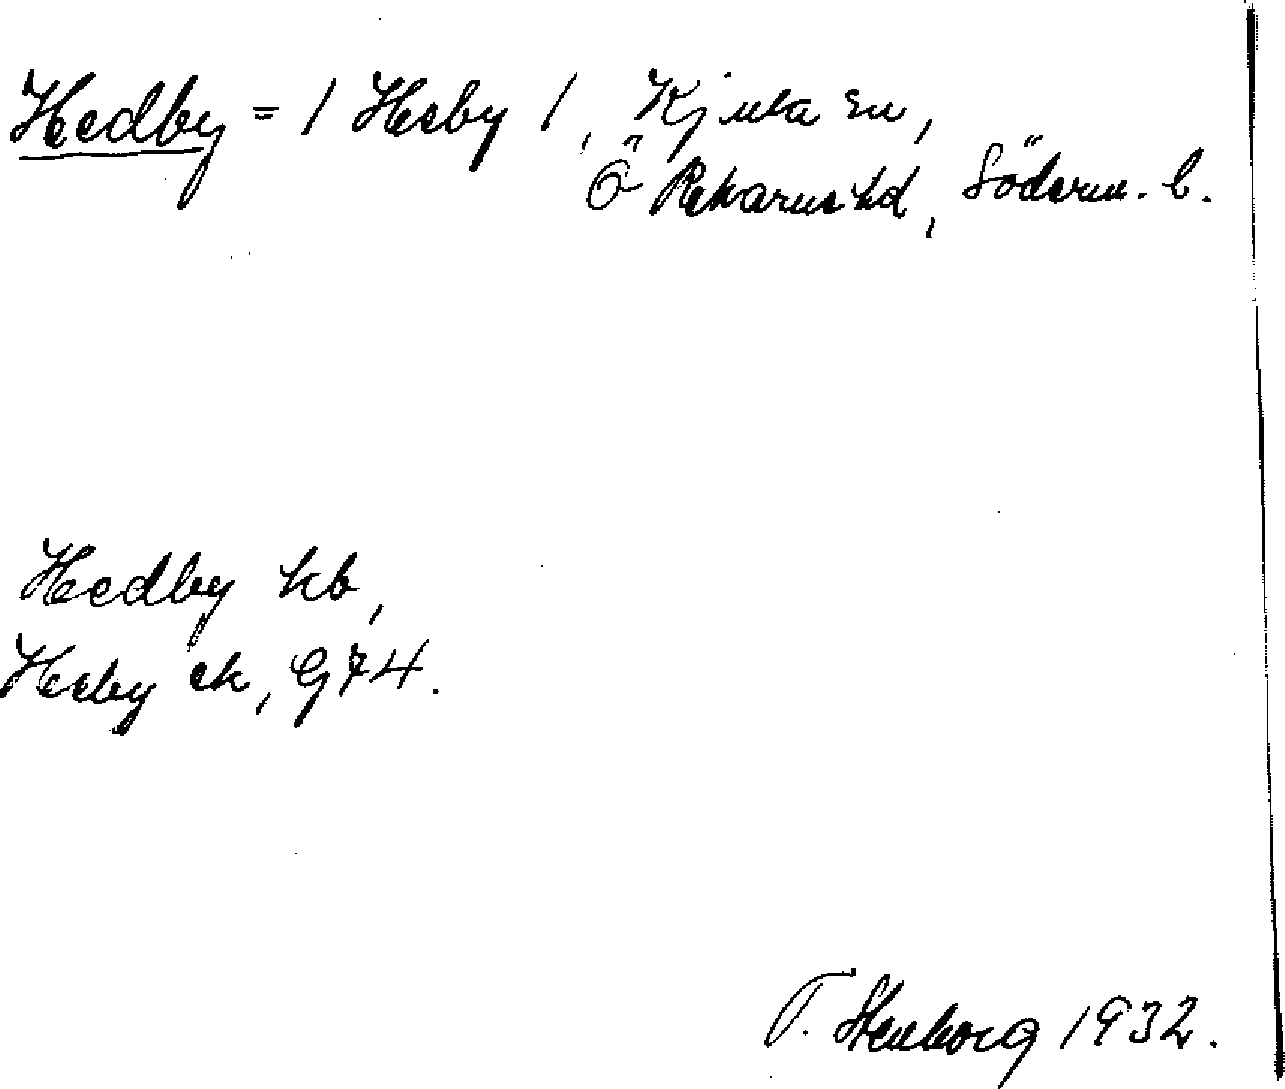 Hedby = / Heby /, Kjula sn,
Ö Rekarne hd, Söderm. l.
Hedby kb,
Heby ek, G74.
T. Stenborg 1932.